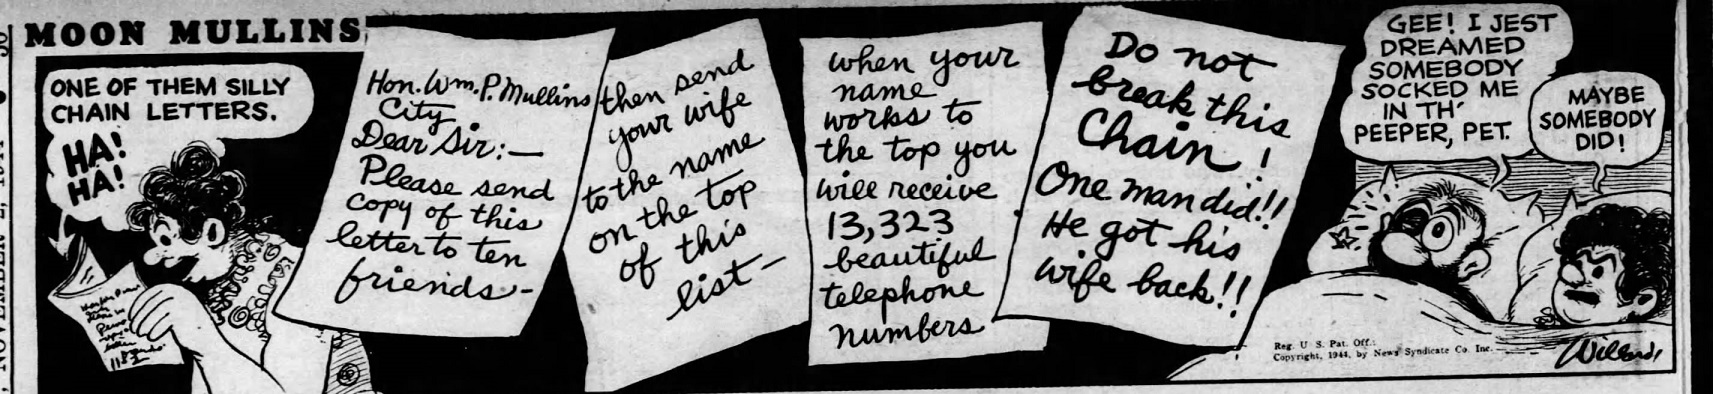 MOON MULLINS
ONE OF THEM SILLY
CHAIN LETTERS.
HA!
HA!
Hon. Wm. P. Mullins
City
Dear Sir:—
Please send
copy of this
letter to ten
friends-
then send
your wife
to the name
on the top
of this
list—
when your
name
works to
the top you
will receive
13,323
beautiful
telephone
numbers
Do not
break this
Chain!
One man did!!
He got his
wife back!!
GEE! I JEST
DREAMED
SOMEBODY
SOCKED ME
IN TH'
PEEPER, PET.
MAYBE
SOMEBODY
DID!
Reg. U. S. Pat. Off.:
Copyright, 1944, by News Syndicate Co. Inc.
Willard,
NOVEMBER 2, 1944